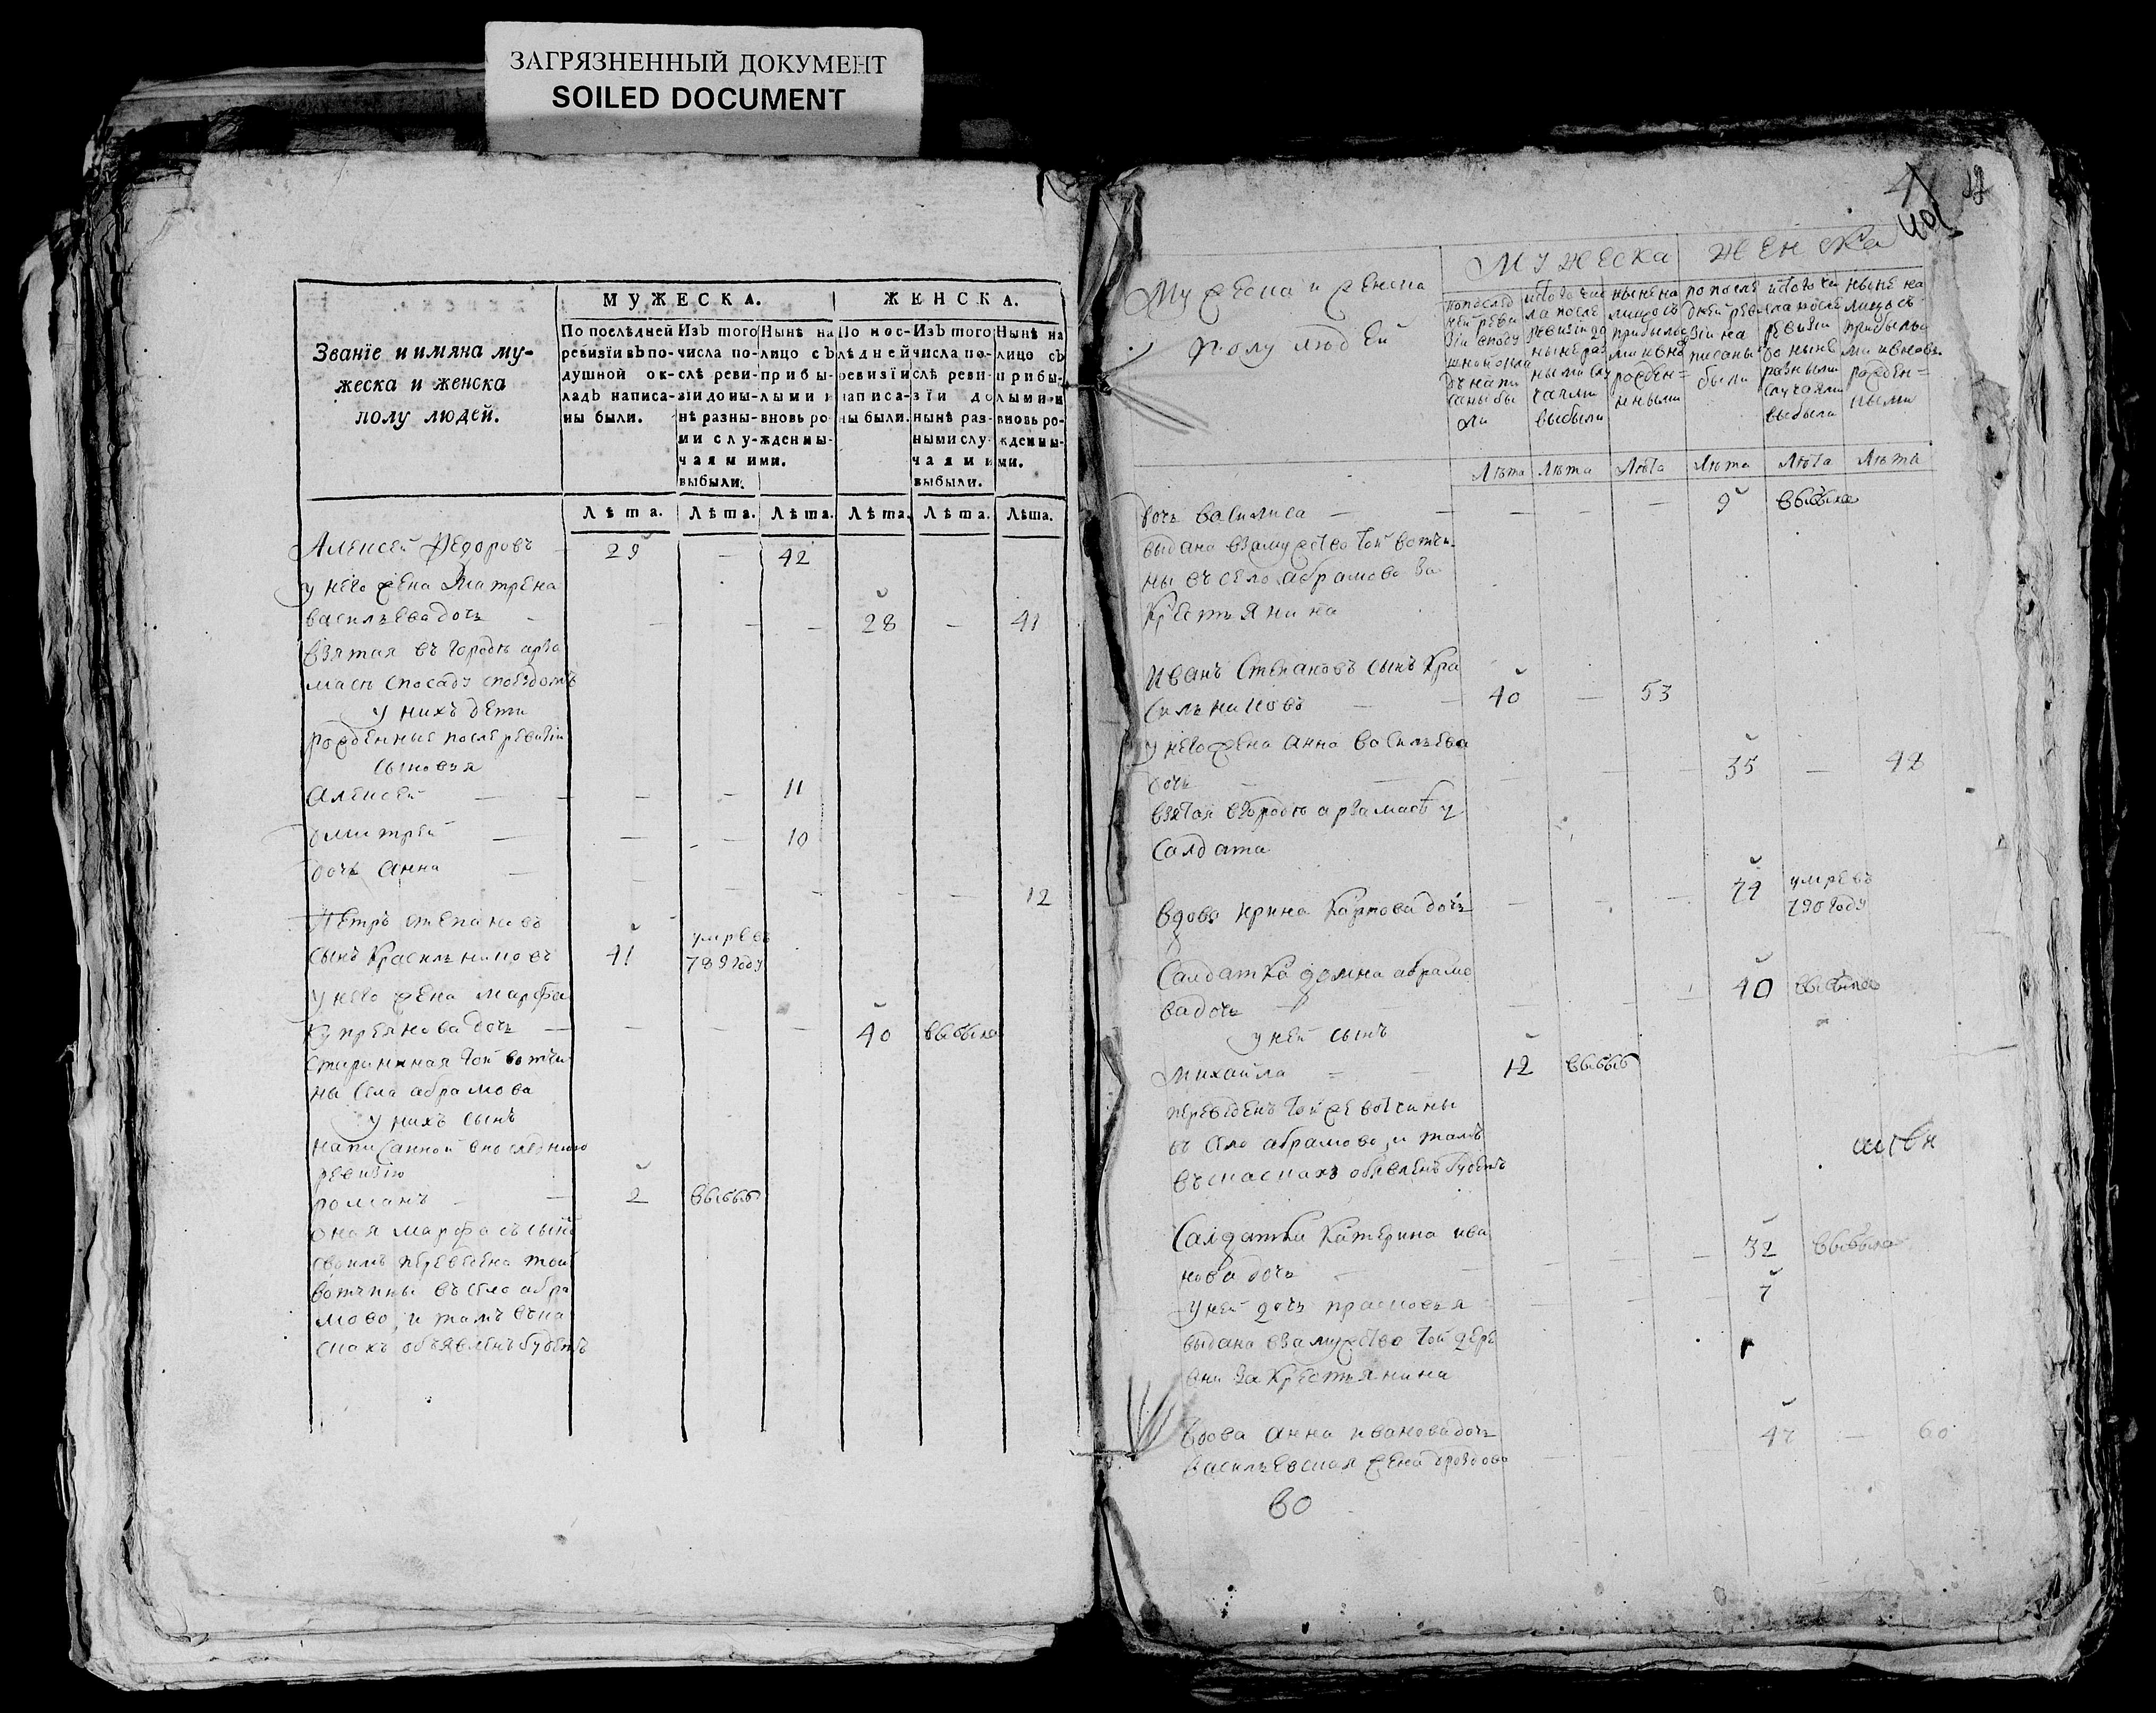 ЗАГРЯЗНЕННЫЙ ДОКУМЕНТ
SOILED DOCUMENT
Званїе и имяна му-
жеска и женска
полу людей.
МУЖЕСКА.
ЖЕНСКА.
По послѣдней
ревизїи въ по-
душной ок-
ладъ написа-
ны были.
Изъ того
числа по-
слѣ реви-
зїи до ны-
нѣ разны-
ми слу-
чаями
выбыли.
Нынѣ на
лицо съ
прибы-
лыми и
вновь ро-
жденны-
ми.
По пос-
лѣдней
ревизїи
написа-
ны были.
Изъ того
числа по-
слѣ реви-
зїи до
нынѣ раз-
ными слу-
чаями
выбыли.
Нынѣ на
лицо съ
прибы-
лыми и
вновь ро-
жденны-
ми.
Лѣта. Лѣта. Лѣта. Лѣта. Лѣта. Лѣта.
Алексей Федоровъ 29 — 42
у него жена Матрена
васильева дочь — — — 28 — 41
взятая въ городѣ арза
масѣ
у нихъ дети
рожденные после ревизїи
сыновья
Алексей — — — 11
дмитрей — — — 10
дочь Анна — — — — — 12
Петръ степановъ
сынъ Красильниковъ 41 умре въ 789 году
у него жена марфа
купреянова дочь — — — — 40 выбыла
старинная той вотчи
ны села абрамова
у нихъ сынъ
написанной в последнюю
ревизїю
романъ — — 2 выбыб
оная марфа съ сыно
своимъ переведена той
вотчины въ село абра
мово, и тамъ въ ска
скахъ объявленъ будетъ
41
401
Мужеска и женска
полу людей
МУЖЕСКА
ЖЕНСКА
по послед
ней реви
зїи в поду
шной окла
дъ напи
саны бы
ли
ис того чис
ла после
ревизїи до
ныне раз
ными слу
чаями
выбыли
ныне на
лицо съ
прибылы
ми и вно
рожден=
нными
по после
дней реви
зїи на
писаны
были
ис того чи
сла после
ревизїи
до ныне
разными
случаями
выбыли
ныне на
лицо съ
прибылы
ми и вновь
рожден=
ными
Лѣта Лѣта Лѣта Лѣта Лѣта Лѣта
дочь василиса — — — — 9 выбыла
выдана взамужство той вотчи
ны въ село абрамово за
крестьянина
Иванъ Степановъ сынъ Кра
сильниковъ — — 40 — 53
у него жена анна васильева
дочь — — — — — 35 — 48
взятая в городѣ арзамасѣ у
салдата
вдова ирина карпова дочь — — — 74 умре въ 790 году
Салдатка домна абрамо
ва дочь — — — — 40 выбыла
у ней сынъ
михайла = — 12 выбыб
переведенъ той же вотчины
въ село абрамово, и тамъ
въ скаскахъ объявленъ будетъ
Салдатка катерина ива
нова дочь — — — — 32 выбыла
у ней дочь прасковья — — — 7
выдана взамужство той дере
вни за крестьянина
вдова анна иванова дочь 47 — 60
васильевская жена дроздова
во